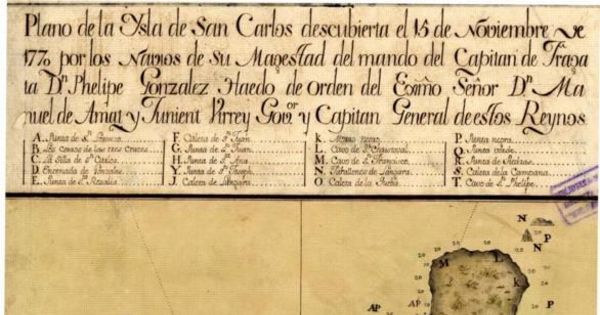 Plano de la Ysla de San Carlos descubierta el 15 de Noviembre de
1770 por los Navios de su Magestad del mando del Capitan de Fraga
ta Dn Phelipe Gonzalez Haedo de orden del Exmo Señor Dn Ma
nuel de Amat y Junient Virrey Govor y Capitan General de estos Reynos
A. Punta de Sn
F. Caleta de Sn Juan
K. Morro negro
P. Punta negra
B. Los Cerros de las tres Cruces
G. Punta de Sn Juan
L. Cavo de Sn Christoval
Q. Punta
C. La Silla de Sn Carlos
H. Punta de Sn Ana
M. Cavo de Sn Francisco
R. Punta de
D. Ensenada de Gonzales
Y. Punta de Sn Joseph
N. Farallones de Langara
S. Caleta de la Campana
E. Punta de Sn Rosalia
J. Caleta de Langara
O. Caleta de la
T. Cavo de Sn Phelipe
N
P
N P
M L
K
AP
AP